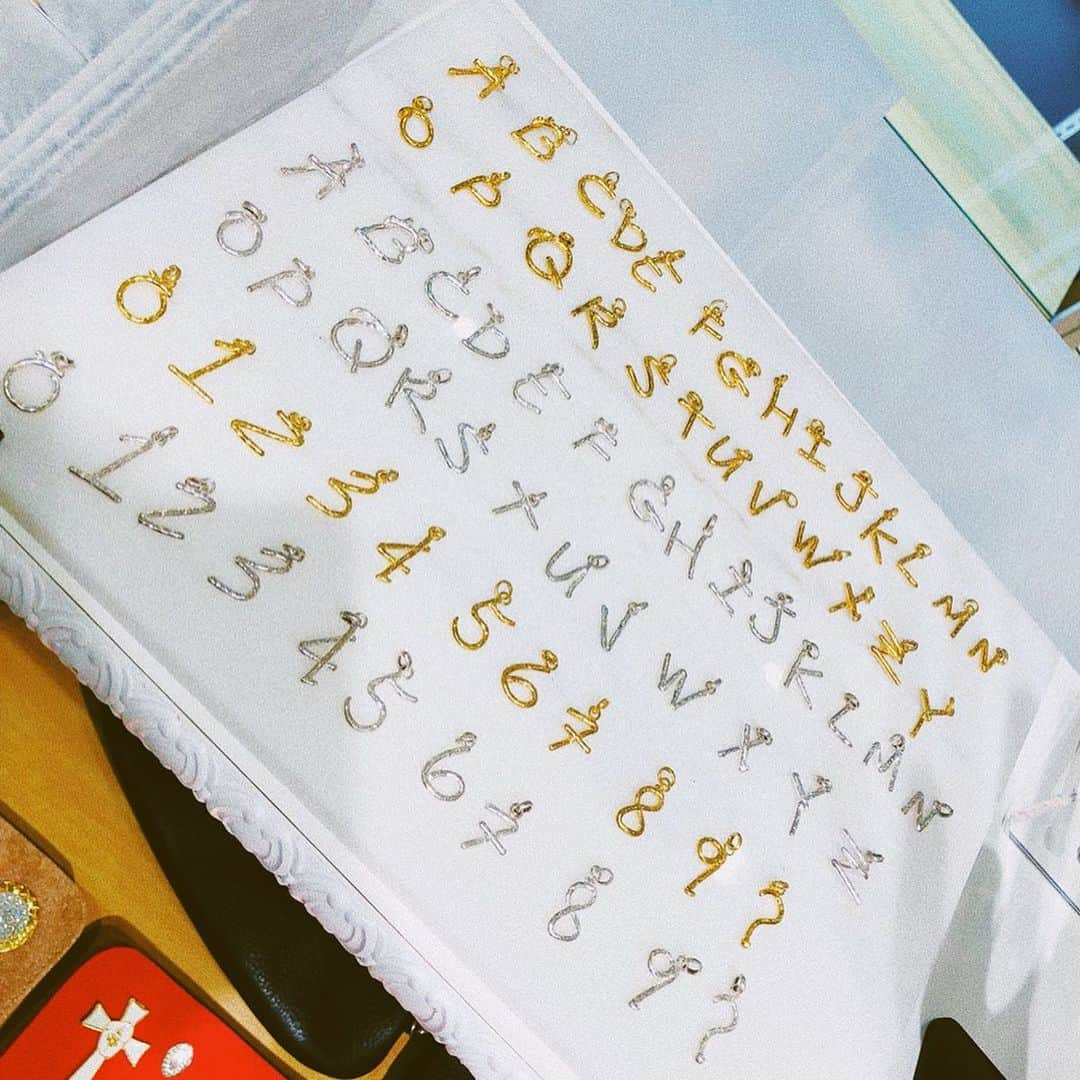 A B C D E F G H I J K L M N
O P Q R S T U V W X Z Y
A B C D E F G H I J K L M N
O P Q R S T U V W X Y Z
0 1 2 3 4 5 6 7 8 9 ?
0 1 2 3 4 5 6 7 8 9 ?